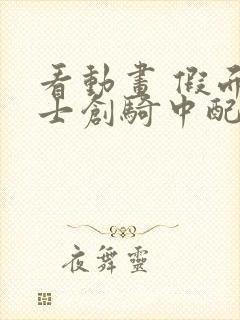 看動畫 假面
士創騎中配
夜舞靈